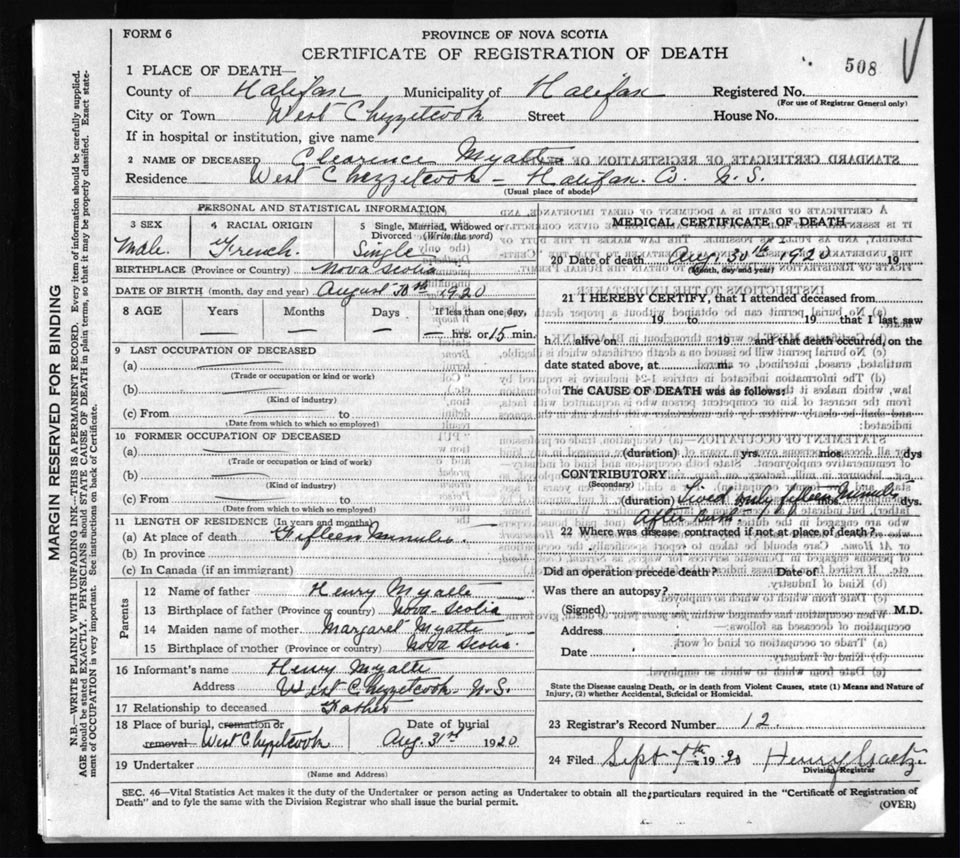 FORM 6
PROVINCE OF NOVA SCOTIA
CERTIFICATE OF REGISTRATION OF DEATH
508
1 PLACE OF DEATH—
County of Halifax Municipality of Halifax Registered No.
(For use of Registrar General only)
City or Town West Chezzetcook Street House No.
If in hospital or institution, give name
2 NAME OF DECEASED Clearence Myatte
Residence West Chezzetcook - Halifax. Co. N.S.
(Usual place of abode)
PERSONAL AND STATISTICAL INFORMATION
3 SEX 4 RACIAL ORIGIN 5 Single, Married, Widowed or Divorced (Write the word)
Male. French. Single
BIRTHPLACE (Province or Country) Nova Scotia
DATE OF BIRTH (month, day and year) August 30th 1920
8 AGE Years Months Days If less than one day,
— — — — hrs. or 15 min.
9 LAST OCCUPATION OF DECEASED
(a)
(Trade or occupation or kind or work)
(b)
(Kind of industry)
(c) From to
(Date from which to which so employed)
10 FORMER OCCUPATION OF DECEASED
(a)
(Trade or occupation or kind of work)
(b)
(Kind of industry)
(c) From to
(Date from which to which so employed)
11 LENGTH OF RESIDENCE (In years and months)
(a) At place of death Fifteen Minutes.
(b) In province
(c) In Canada (if an immigrant)
Parents
12 Name of father Henry Myatte
13 Birthplace of father (Province or country) Nova Scotia
14 Maiden name of mother Margaret Myatte
15 Birthplace of mother (Province or country) Nova Scotia
16 Informant's name Henry Myatte
Address West Chezzetcook N.S.
17 Relationship to deceased Father
18 Place of burial, cremation or removal West Chezzetcook Date of burial Aug 31st 1920
19 Undertaker
(Name and Address)
MEDICAL CERTIFICATE OF DEATH
20 Date of death Aug. 30th 1920 19
(Month, day and year)
21 I HEREBY CERTIFY, that I attended deceased from
19 to 19 that I last saw
h alive on 19 and that death occurred, on the
date stated above, at m.
The CAUSE OF DEATH was as follows:
(duration) yrs. mos. dys
CONTRIBUTORY
(Secondary)
(duration) Lived only fifteen Minutes mos. dys.
After birth
22 Where was disease contracted if not at place of death?
Did an operation precede death? Date of
Was there an autopsy?
(Signed) M.D.
Address
Date
State the Disease causing Death, or in death from Violent Causes, state (1) Means and Nature of
Injury, (2) whether Accidental, Suicidal or Homicidal.
23 Registrar's Record Number 12.
24 Filed Sept 7th 1920 Henry Gaetz
Division Registrar
SEC. 46—Vital Statistics Act makes it the duty of the Undertaker or person acting as Undertaker to obtain all the particulars required in the "Certificate of Registration of
Death" and to fyle the same with the Division Registrar who shall issue the burial permit.
(OVER)
MARGIN RESERVED FOR BINDING
N.B.—WRITE PLAINLY, WITH UNFADING INK—THIS IS A PERMANENT RECORD. Every item of information should be carefully supplied.
AGE should be stated EXACTLY. PHYSICIANS should STATE CAUSE OF DEATH in plain terms, so that it may be properly classified. Exact state-
ment of OCCUPATION is very important. See instructions on back of Certificate.